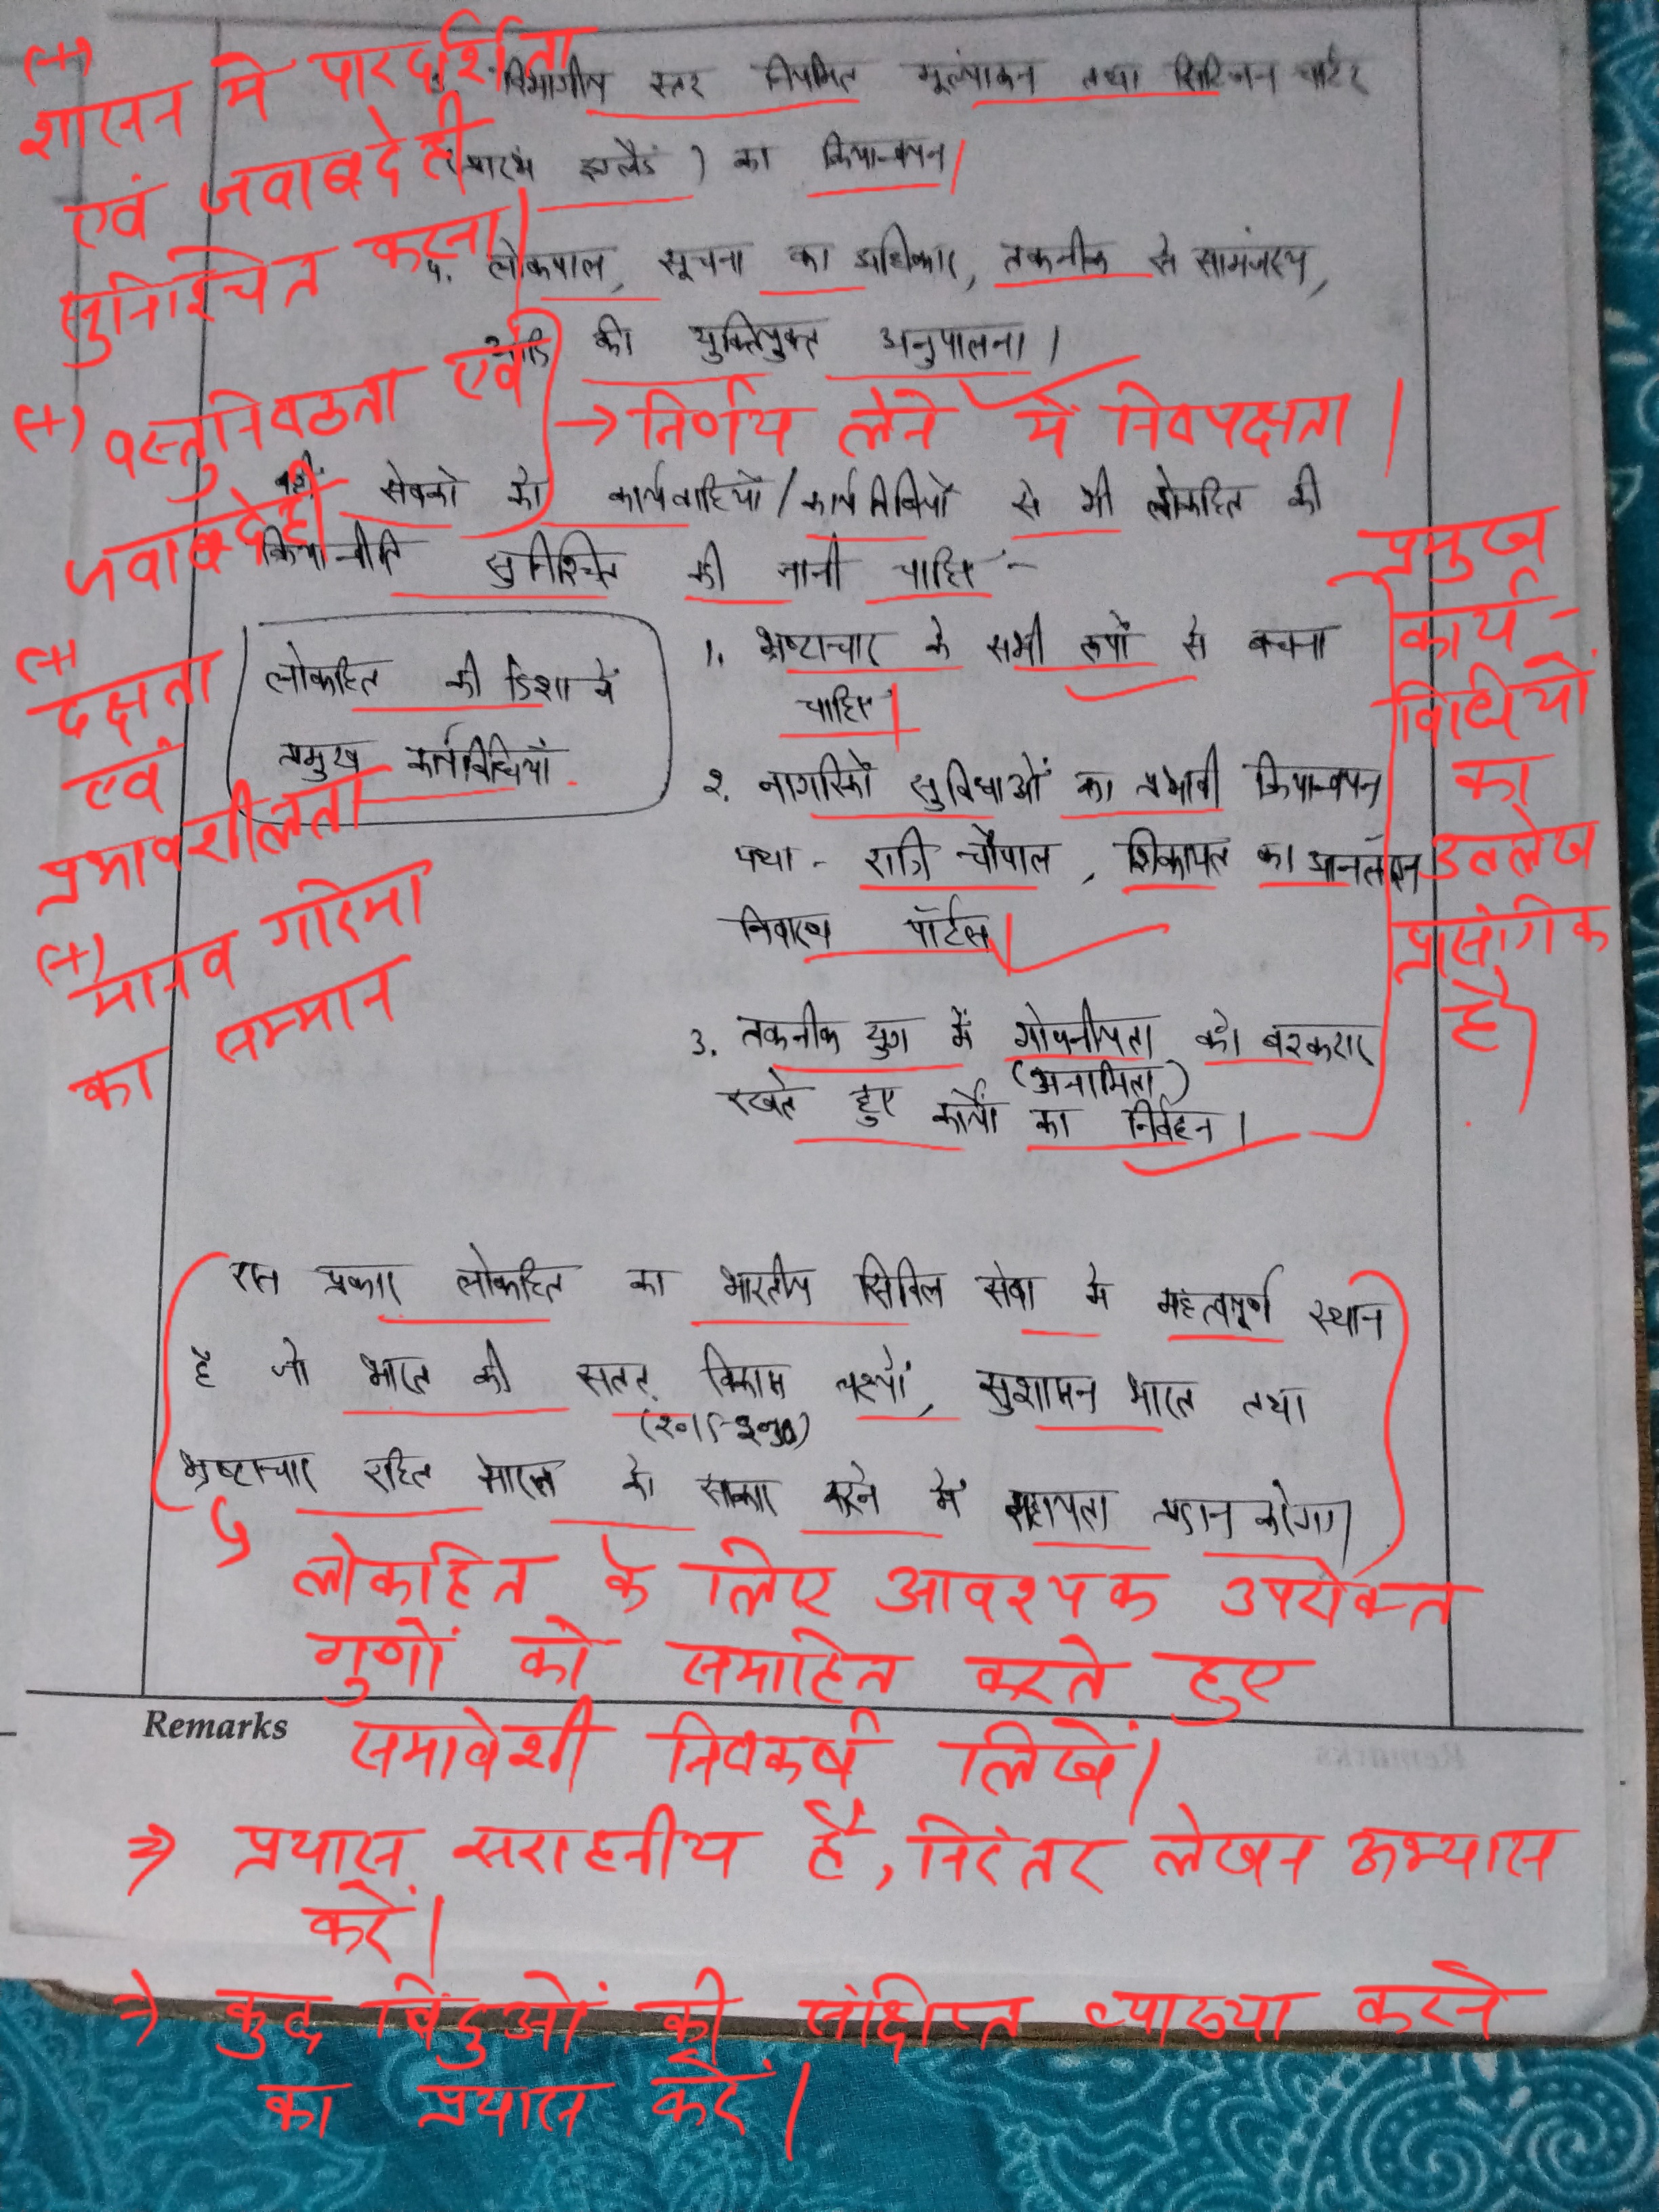 (+)
शासन में पारदर्शिता
एवं जवाबदेही
सुनिश्चित करना।
विभागीय स्तर नियमित मूल्यांकन तथा सिटिजन चार्टर
इंग्लैंड ) का क्रियान्वयन।
4. लोकपाल, सूचना का अधिकार, तकनीक से सामंजस्य,
आदि की युक्तियुक्त अनुपालना।
(+) वस्तुनिष्ठता एवं
जवाबदेही
→ निर्णय लेने में निष्पक्षता।
वहीं सेवकों की कार्यवाहियों/कार्यविधियों से भी लोकहित की
क्रियान्विति सुनिश्चित की जानी चाहिए -
(+)
दक्षता
एवं
प्रभावशीलता
(+)
मानव गरिमा
का सम्मान
लोकहित की दिशा में
प्रमुख कार्यविधियां
1. भ्रष्टाचार के सभी रूपों से बचना
चाहिए।
२. नागरिकों सुविधाओं का प्रभावी क्रियान्वयन
यथा - रात्रि चौपाल, शिकायत का आनलाइन
निवारण पॉर्टल।
3. तकनीक युग में गोपनीयता को बरकरार
(अनामिता)
रखते हुए कार्यों का निर्वहन।
प्रमुख
कार्य-
विधियों
का
उल्लेख
प्रासंगिक
है।
इस प्रकार लोकहित का भारतीय सिविल सेवा में महत्वपूर्ण स्थान
है जो भारत की सतत् विकास लक्ष्यों, सुशासन भारत तथा
(२०15-२०३0)
भ्रष्टाचार रहित भारत को साकार करने में सहायता प्रदान करेगा।
लोकहित के लिए आवश्यक उपरोक्त
गुणों को समाहित करते हुए
समावेशी निष्कर्ष लिखें।
Remarks
⇒ प्रयास सराहनीय है, निरंतर लेखन अभ्यास
करें।
→ कुछ बिंदुओं की संक्षिप्त व्याख्या करने
का प्रयास करें।